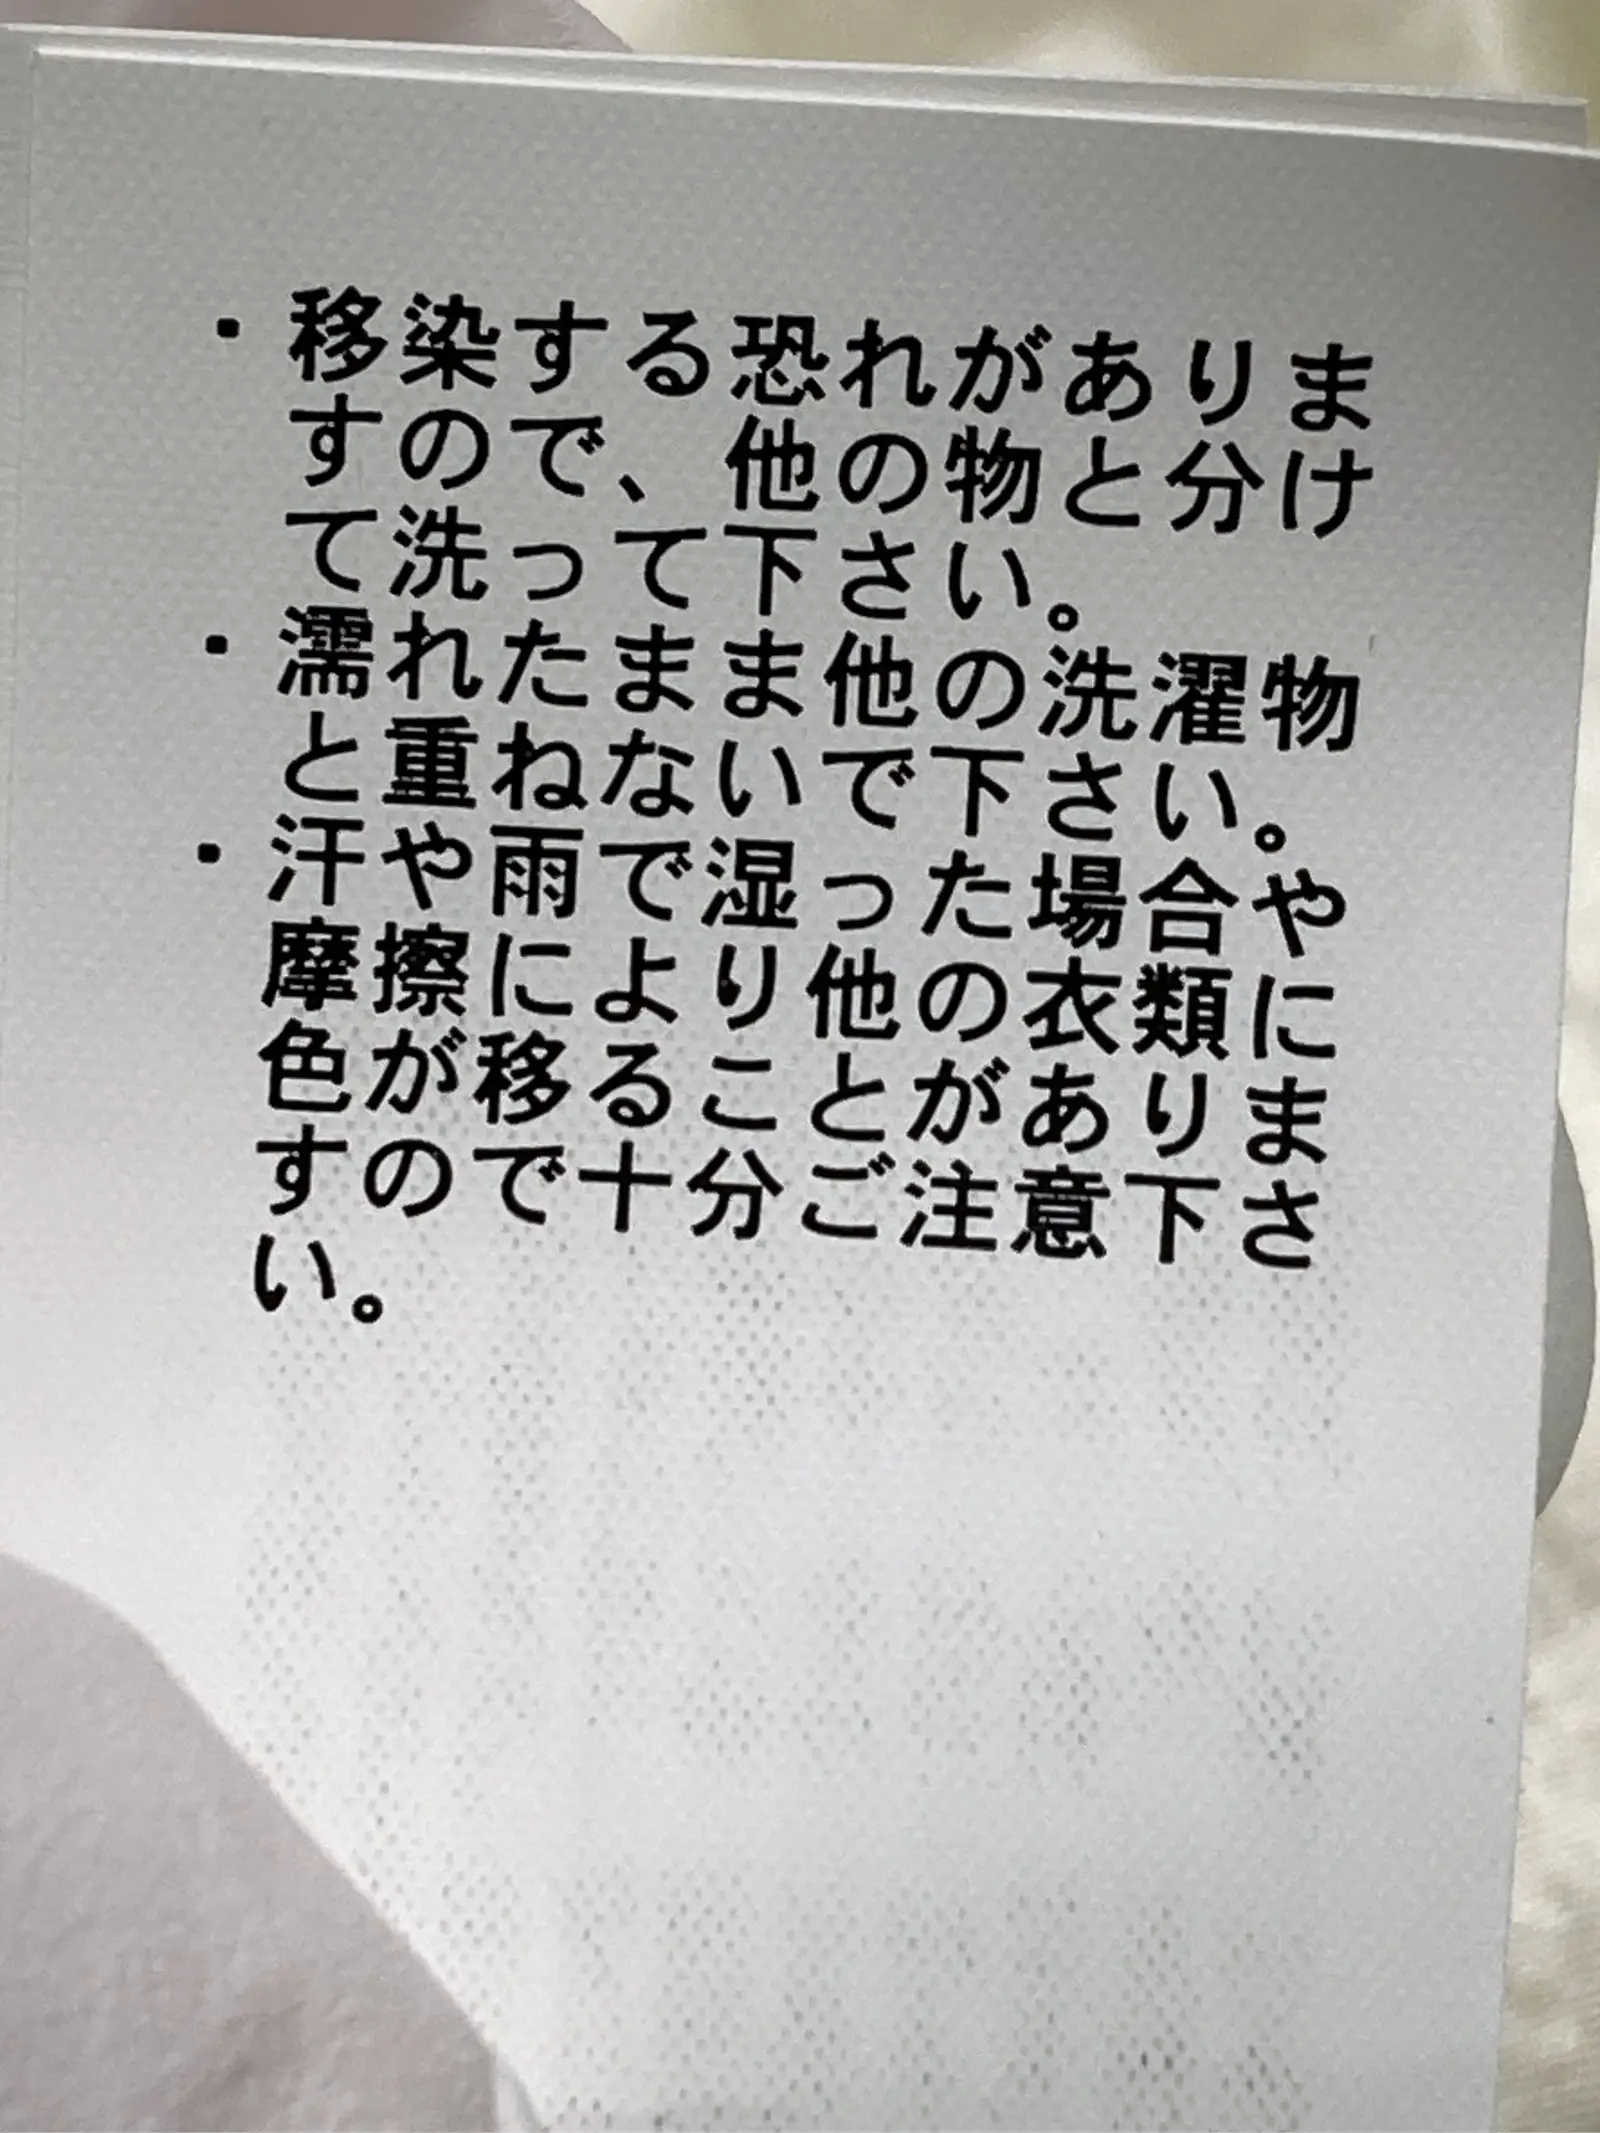 ・移染する恐れがありま
すので、他の物と分け
て洗って下さい。
・濡れたまま他の洗濯物
と重ねないで下さい。
・汗や雨で湿った場合や
摩擦により他の衣類に
色が移ることがありま
すので十分ご注意下さ
い。